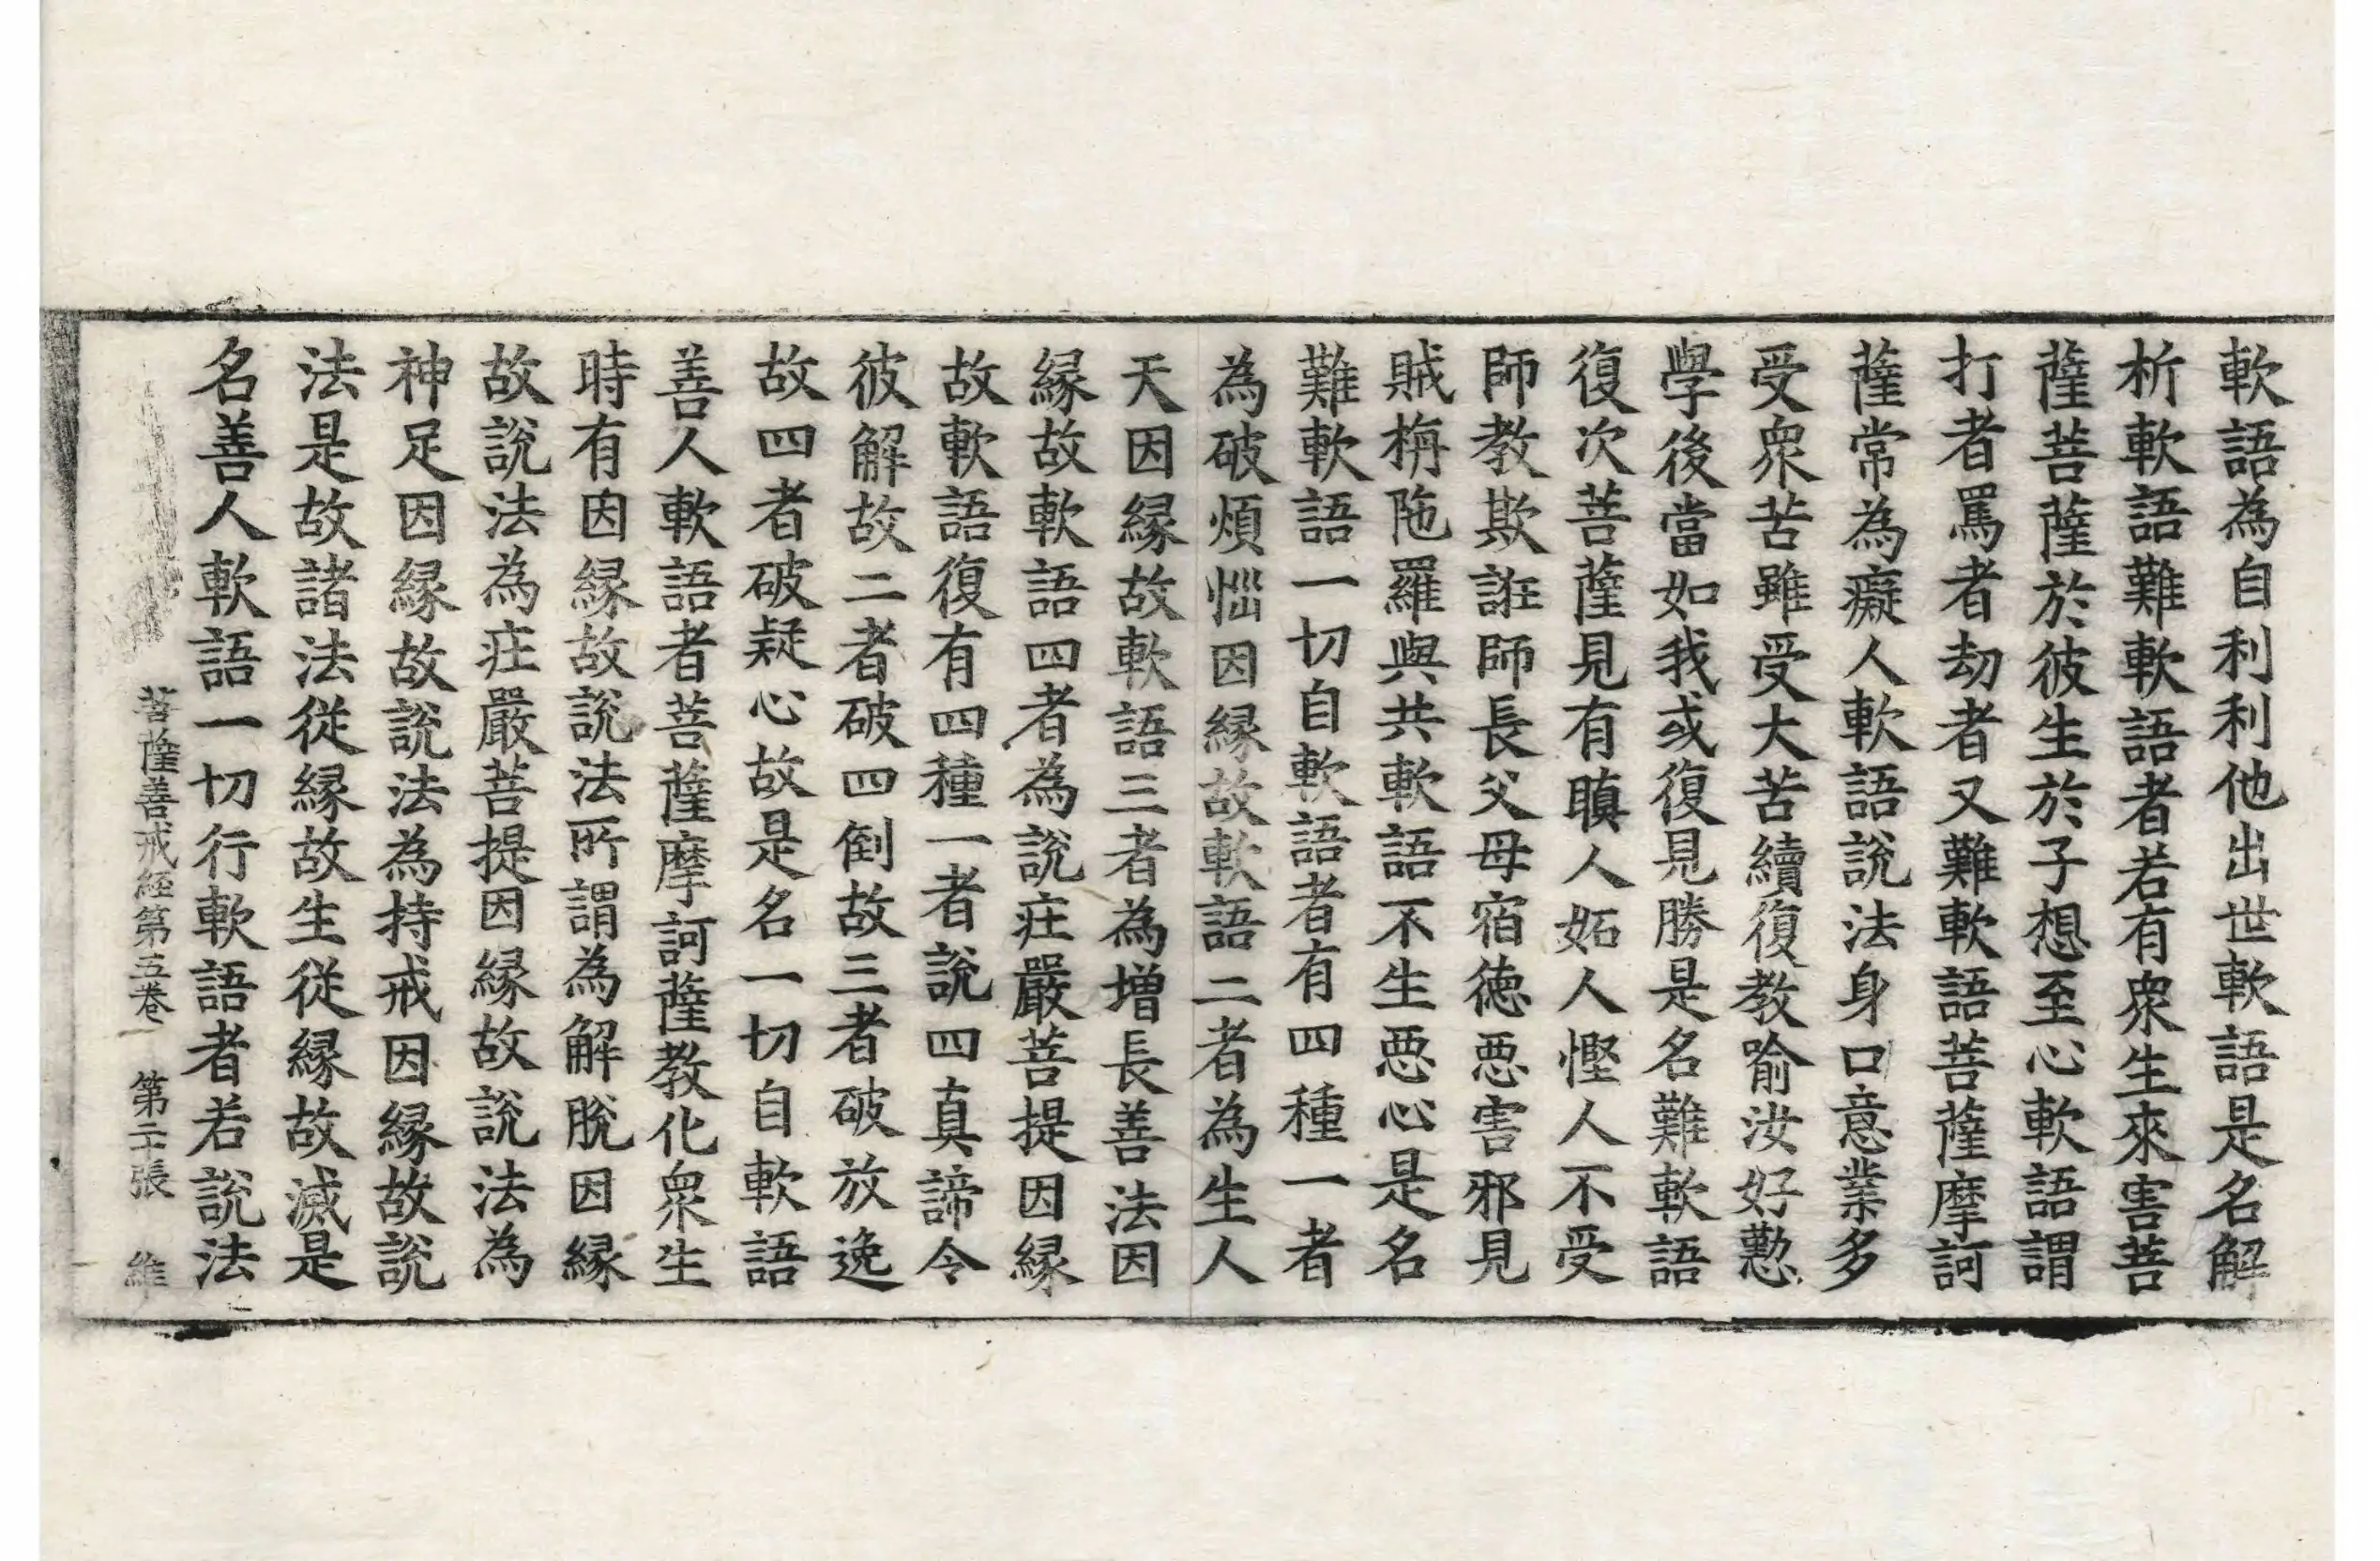 軟語為自利利他出世軟語是名解
析軟語難軟語者若有衆生來害菩
薩菩薩於彼生於子想至心軟語謂
打者罵者劫者又難軟語菩薩摩訶
薩常為癡人軟語說法身口意業多
受衆苦雖受大苦續復教喻汝好懃
學後當如我或復見勝是名難軟語
復次菩薩見有瞋人妬人慳人不受
師教欺誑師長父母宿徳惡害邪見
賊栴陁羅與共軟語不生惡心是名
難軟語一切自軟語者有四種一者
為破煩惱因縁故軟語二者為生人
天因縁故軟語三者為增長善法因
縁故軟語四者為說莊嚴菩提因縁
故軟語復有四種一者說四真諦令
彼解故二者破四倒故三者破放逸
故四者破疑心故是名一切自軟語
善人軟語者菩薩摩訶薩教化衆生
時有因縁故說法所謂為解脫因縁
故說法為莊嚴菩提因縁故說法為
神足因縁故說法為持戒因縁故說
法是故諸法從縁故生從縁故滅是
名善人軟語一切行軟語者若說法
菩薩善戒經第五卷 第二張 維